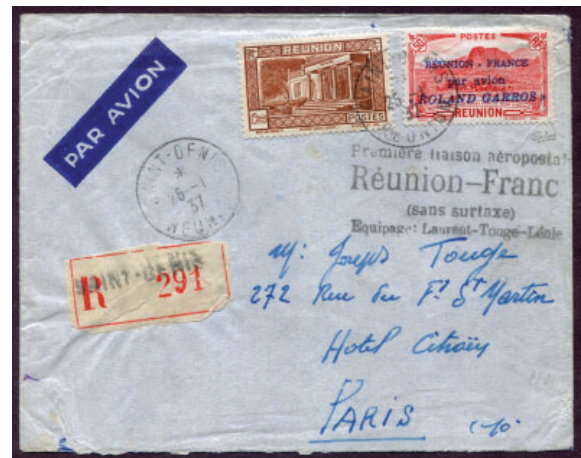 PAR AVION
RÉUNION
POSTES
POSTES
50
RF
RÉUNION - FRANCE
par avion
"ROLAND GARROS"
RÉUNION
SAINT-DENIS
*
25 -1
37
RÉUNION
Première liaison aéropostal
Réunion–Franc
(sans surtaxe)
Equipage: Laurent-Touge-Lénie
SAINT-DENIS
R 291
M. Joseph Touge
272 Rue du Fg St Martin
Hotel Citroën
PARIS